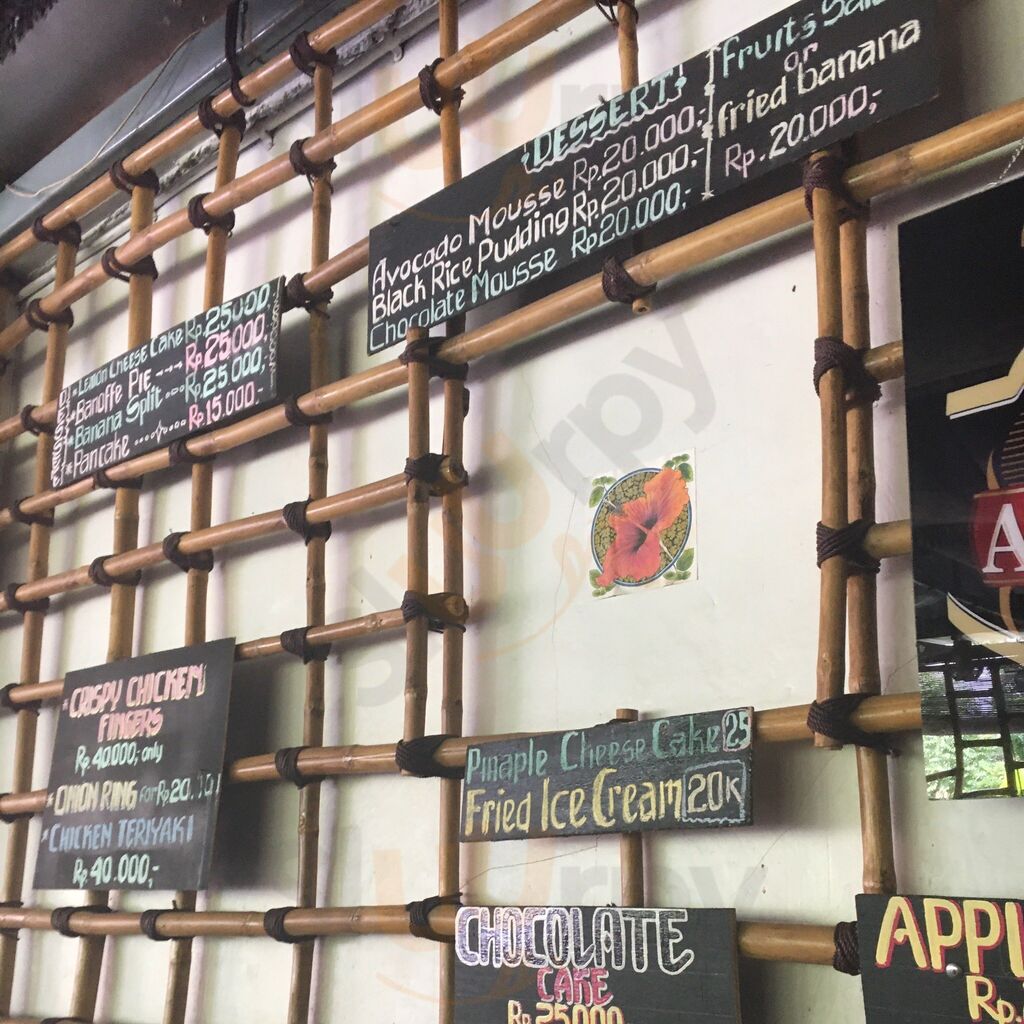 DESSERT
Avocado Mousse Rp.20.000,-
Black Rice Pudding Rp.20.000,-
Chocolate Mousse Rp20.000,-
Fruits
or
fried banana
Rp.20.000,-
*Lemon Cheese Cake Rp.25000,
*Banoffe Pie ---→ Rp 25000,
*Banana Split ---- Rp.25 000,-
*Pancake ........ Rp 15.000.-
*CRISPY CHICKEN
FINGERS
Rp.40.000,- only
*ONION RING for Rp20.
*CHICKEN TERIYAKI
Rp.40.000,-
Pinaple Cheese Cake 25
Fried Ice Cream 20K
CHOCOLATE
CAKE
Rp.25000
APPL
Rp.
A